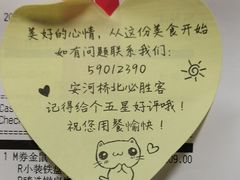 美好的心情，从这份美食开始
如有问题联系我们：
59012390
安河桥北必胜客
记得给个五星好评哦！
祝您用餐愉快！
Cas
Check
1 M券金
09.00
R小装铁盘